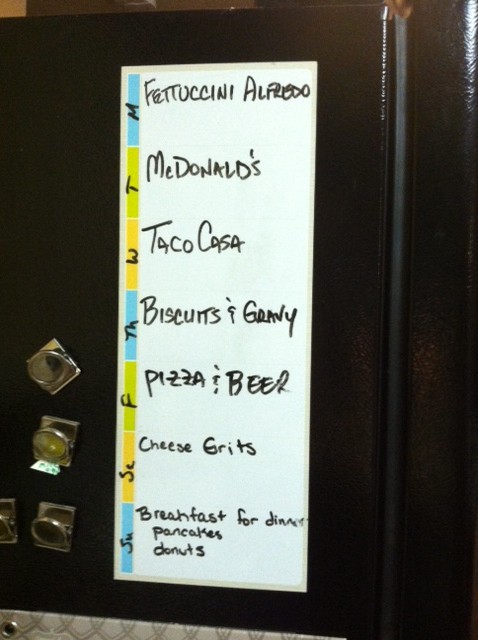 M FETTUCCINI ALFREDO
T McDONALD'S
W TACO CASA
Th BISCUITS & GRAVY
F PIZZA & BEER
Sa Cheese Grits
Su Breakfast for dinner
pancakes
donuts